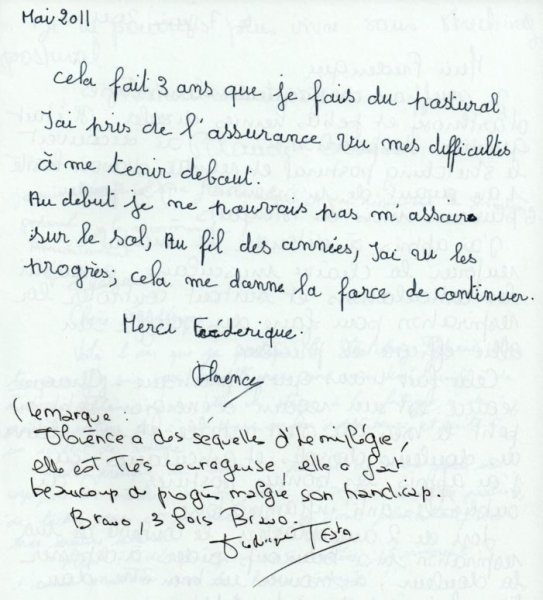 Mai 2011
cela fait 3 ans que je fais du postural
J'ai pris de l'assurance vu mes difficultés
à me tenir debout.
Au debut je ne pouvais pas m'assoire
sur le sol, Au fil des années, J'ai vu les
progrès, cela me donne la force de continuer.
Merci Frederique.
Florence
Remarque :
Florence a des sequelles d'hemiplégie,
elle est Très courageuse, elle a fait
beaucoup de progrès malgré son handicap.
Bravo, 3 fois Bravo.
Frédérique Testa